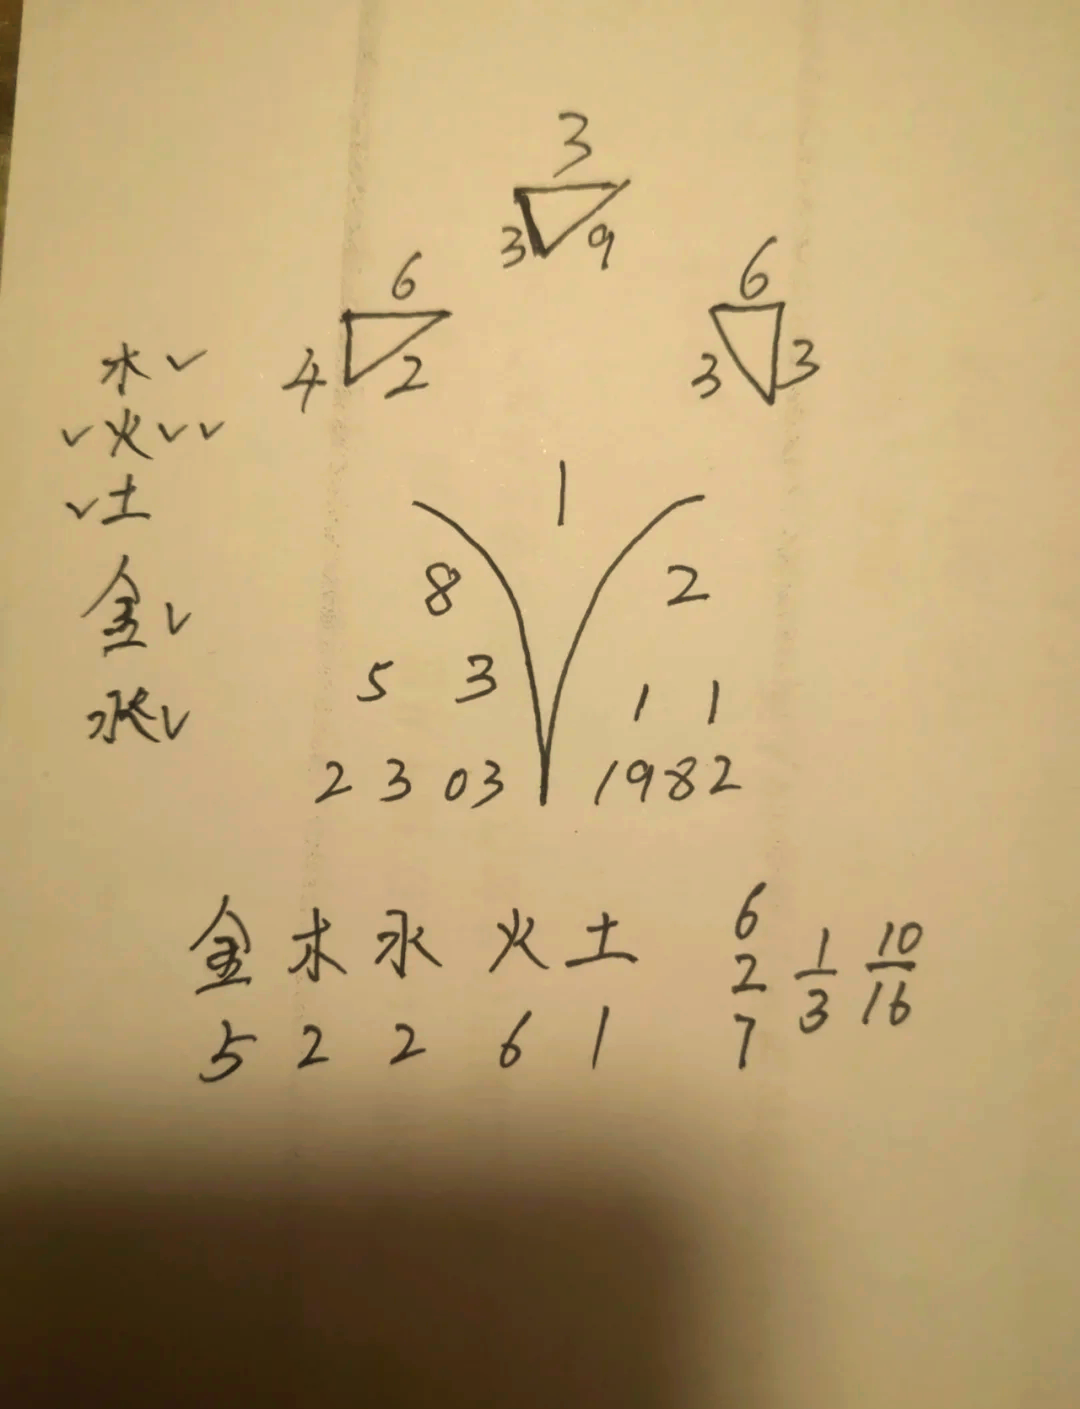 3
3 9
6
4 2
6
3 3
木
火
土
金
水
1
8 2
5 3 1 1
2 3 03 1982
金 木 水 火 土
5 2 2 6 1
6
2
7
1
3
10
16